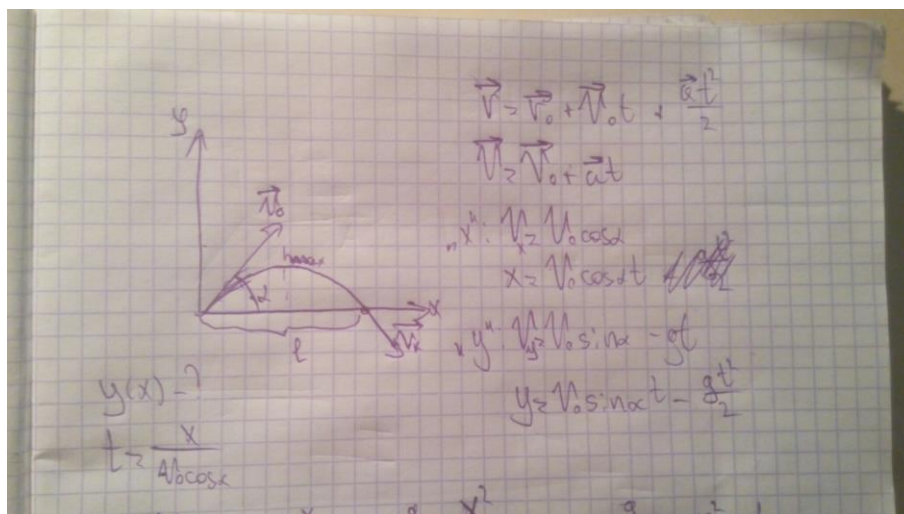 y
v⃗₀
hmax
α
x
l
v⃗ₖ
y(x) - ?
t = x / v₀cosα
r⃗ = r⃗₀ + v⃗₀t + a⃗t²/2
v⃗ = v⃗₀ + a⃗t
"x": vₓ = v₀cosα
x = v₀cosαt
"y": v_y = v₀sinα - gt
y = v₀sinαt - gt²/2